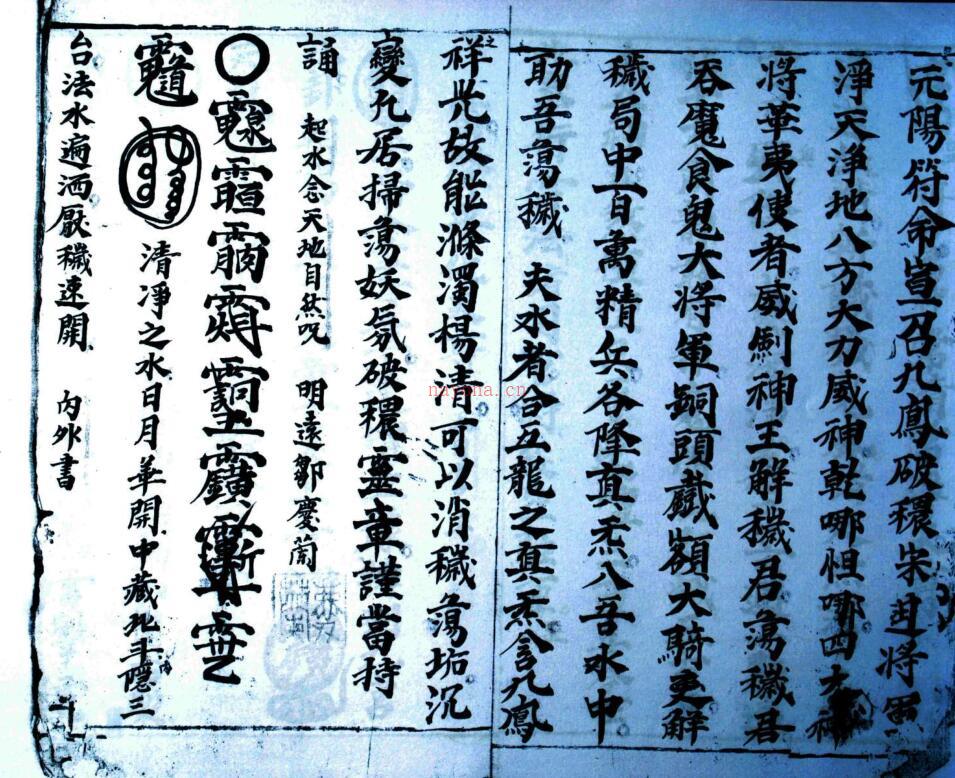 元陽符命宣召九鳳破穢宋迬將軍
淨天淨地八方大力威神乾哪怛哪四大神
將華夷使者威劍神王解穢君蕩穢君
吞魔食鬼大將軍銅頭鐵額大騎吏解
穢局中百萬精兵各降真炁入吾水中
助吾蕩穢 夫水者合五龍之真炁含九鳳
之祥光故能滌濁楊清可以消穢蕩垢沉
變凡居掃蕩妖氛破穢靈章謹當持
誦 起水念天地自然咒 明遠鄒慶蘭
清凈之水日月華開中藏北斗內隱三
台法水遍洒厭穢速開 內外書
nayona.cn